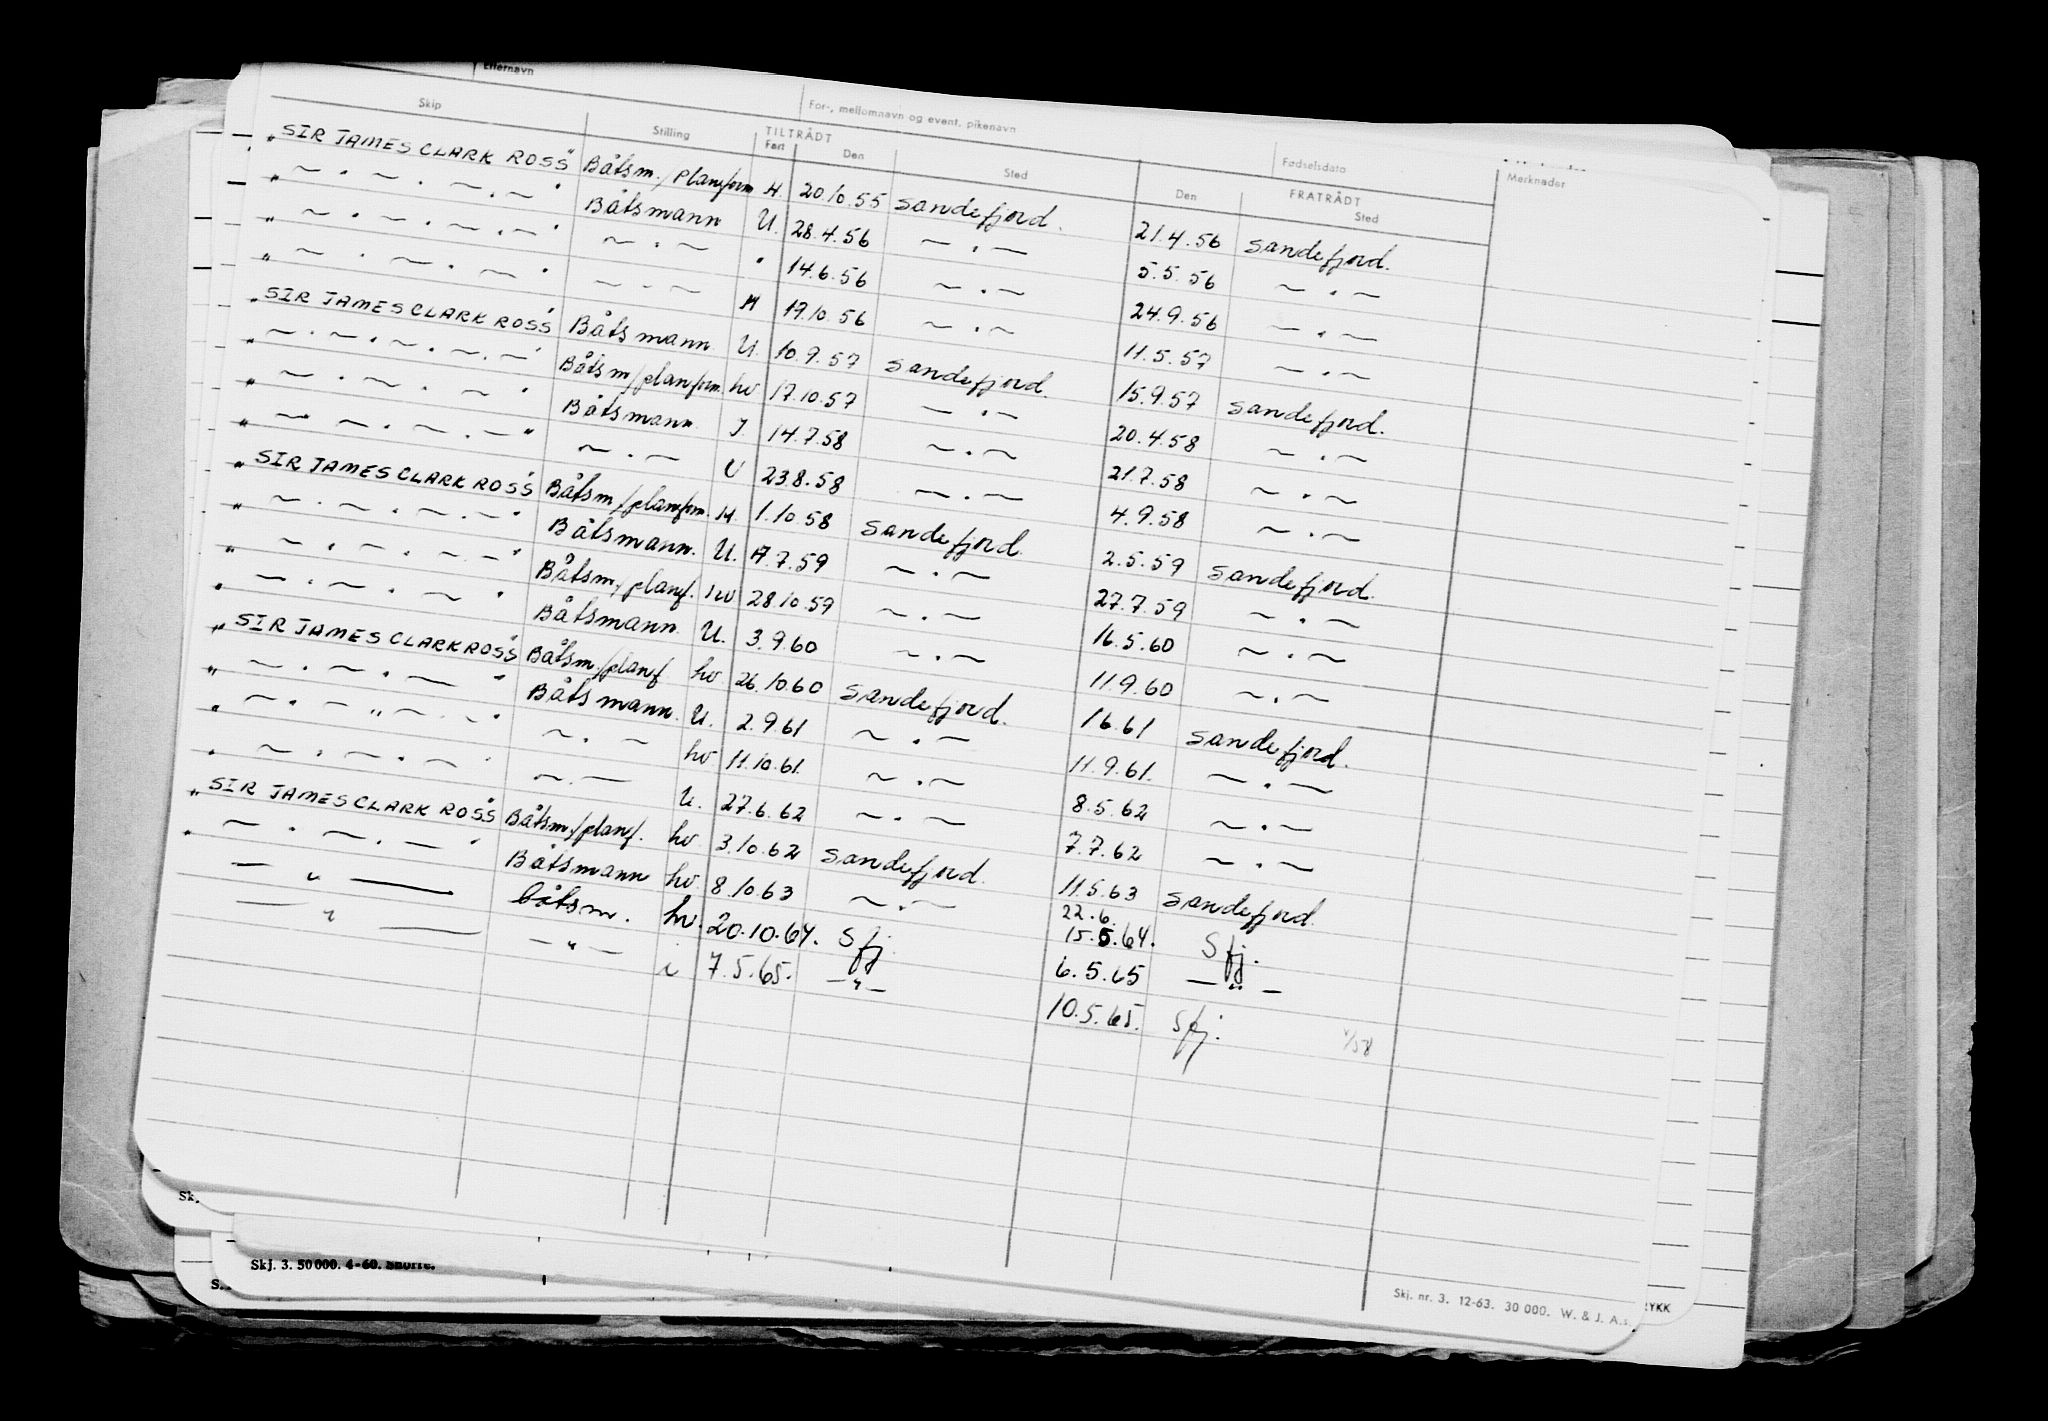 Etternavn For-, mellomnavn og event. pikenavn Fødselsdata
Skip Stilling TILTRÅDT FRATRÅDT Merknader
Fart Den Sted Den Sted
"SIR JAMES CLARK ROSS" Båtsm./planform H. 20.10.55 Sandefjord. 21.4.56 Sandefjord.
" ~ . ~ . ~ . ~ " Båtsmann U. 28.4.56 ~ . ~ 5.5.56 ~ . ~
" ~ . ~ . ~ . ~ " ~ . ~ " 14.6.56 ~ . ~ 24.9.56 ~ . ~
" ~ . ~ . ~ . ~ " ~ . ~ H 19.10.56 ~ . ~ 11.5.57 ~ . ~
"SIR JAMES CLARK ROSS" Båtsmann U. 10.9.57 Sandefjord. 15.9.57 Sandefjord.
" ~ . ~ . ~ . ~ " Båtsm/planform. hv 17.10.57 ~ . ~ 20.4.58 ~ . ~
" ~ . ~ . ~ . " Båtsmann J. 14.7.58 ~ . ~ 21.7.58 ~ . ~
" ~ . ~ . ~ . ~ " ~ . ~ U 23.8.58 ~ . ~ 4.9.58 ~ . ~
"SIR JAMES CLARK ROSS" Båtsm/planform. H. 1.10.58 Sandefjord. 2.5.59 Sandefjord.
" ~ . ~ . ~ . ~ " Båtsmann. U. 17.7.59 ~ . ~ 27.7.59 ~ . ~
" ~ . ~ . ~ . ~ " Båtsm/planf. hv 28.10.59 ~ . ~ 16.5.60 ~ . ~
" ~ . ~ . ~ " Båtsmann. U. 3.9.60 ~ . ~ 11.9.60 ~ . ~
"SIR JAMES CLARK ROSS" Båtsm./planf hv 26.10.60 Sandefjord. 16.61 Sandefjord.
" ~ . ~ . ~ " Båtsmann. U. 2.9.61 ~ . ~ 11.9.61. ~ . ~
" ~ . ~ " ~ . ~ " ~ . ~ hv 11.10.61. ~ . ~ 8.5.62 ~ . ~
" ~ . ~ . ~ " ~ . ~ U. 27.6.62 ~ . ~ 7.7.62 ~ . ~
"SIR JAMES CLARK ROSS" Båtsm/planf. hv. 3.10.62 Sandefjord. 11.5.63 Sandefjord.
" ~ . ~ . ~ " Båtsmann hv. 8.10.63 ~ . ~ 22.6 15.5.64. Sfj.
— " — båtsm. hv. 20.10.64. Sfj. 6.5.65 — " —
— " — — " — i 7.5.65. — " — 10.5.65. Sfj.
/58
Skj. nr. 3. 12-63. 30 000. W. & J. A.s.
Skj. 3. 50 000. 4-60. Snorre.
Sk.
S.
RYKK